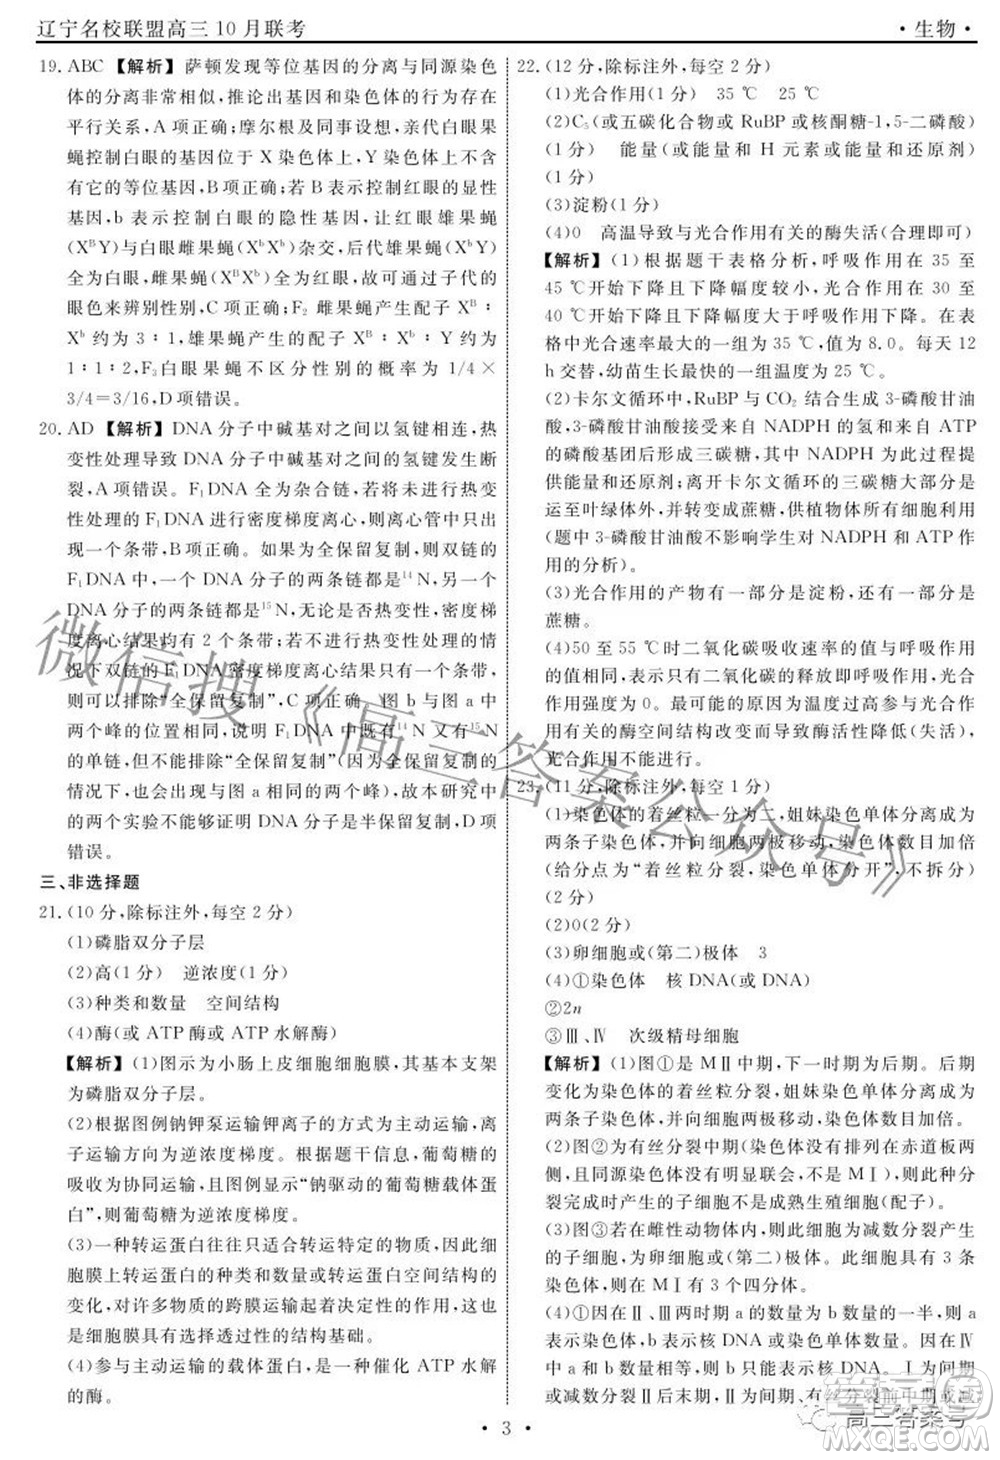 辽宁名校联盟高三10月联考
·生物·
19. ABC 【解析】萨顿发现等位基因的分离与同源染色
体的分离非常相似，推论出基因和染色体的行为存在
平行关系，A项正确；摩尔根及同事设想，亲代白眼果
蝇控制白眼的基因位于X染色体上，Y染色体上不含
有它的等位基因，B项正确；若B表示控制红眼的显性
基因，b表示控制白眼的隐性基因，让红眼雄果蝇
(XᴮY)与白眼雌果蝇(XᵇXᵇ)杂交，后代雄果蝇(XᵇY)
全为白眼，雌果蝇(XᴮXᵇ)全为红眼，故可通过子代的
眼色来辨别性别，C项正确；F₂雌果蝇产生配子Xᴮ∶
Xᵇ约为3∶1，雄果蝇产生的配子Xᴮ∶Xᵇ∶Y约为
1∶1∶2，F₃白眼果蝇不区分性别的概率为1/4×
3/4=3/16，D项错误。
20. AD 【解析】DNA分子中碱基对之间以氢键相连，热
变性处理导致DNA分子中碱基对之间的氢键发生断
裂，A项错误。F₁DNA全为杂合链，若不进行热变
性处理的F₁DNA进行密度梯度离心，则离心管中只出
现一个条带，B项正确。如果为全保留复制，则双链的
F₁DNA中，一个DNA分子的两条链都是¹⁴N，一个
DNA分子的两条链都是¹⁵N，无论是否热变性，密度梯
度离心结果均有2个条带；若不进行热变性处理的情
况下双链的F₁DNA密度梯度离心结果只有一个条带，
则可以排除“全保留复制”，C项正确。图b与图a中的
两个峰的位置相同，说明F₁DNA中既有¹⁴N又有¹⁵N
链，但不能排除“全保留复制”(因为全保留复制在两种
情况下，均会出现与图a相同的两个峰)，故本研究中
的两个实验不能够证明DNA分子是半保留复制，D项
错误。
三、非选择题
21. (10分，除标注外，每空2分)
(1)磷脂双分子层
(2)高(1分) 逆浓度(1分)
(3)种类和数量 空间结构
(4)酶(或ATP酶或ATP水解酶)
【解析】(1)图示为小肠上皮细胞细胞膜，其基本支架
为磷脂双分子层。
(2)根据图例钠钾泵运输钾离子的方式为主动运输，
主动运输逆浓度梯度。根据已知信息，葡萄糖的
吸收为协同运输，且显示“钠驱动的葡萄糖载体蛋
白”，则葡萄糖为逆浓度梯度。
(3)一种转运蛋白往往只适合转运特定的物质，因此
细胞膜上转运蛋白的种类和数量，或转运蛋白空间结构的
变化，对许多物质的跨膜运输起着决定性的作用，这
也是细胞膜具有选择透过性的结构基础。
(4)参与主动运输的载体蛋白，是一种催化ATP水解
的酶。
22. (12分，除标注外，每空2分)
(1)光合作用(1分) 35 ℃ 25 ℃
(2)C₅(或五碳化合物或RuBP或核酮糖-1,5-二磷酸)
(1分) 能量(或能量和H元素或能量和还原剂)
(1分)
(3)淀粉(1分)
(4)0 高温导致与光合作用有关的酶失活(合理即可)
【解析】(1)根据题干表格分析，呼吸作用在35至
45 ℃开始下降且下降幅度较小，光合作用在30至
40 ℃开始下降且下降幅度大于呼吸作用。所以在表
格中光合速率最大的一组为35 ℃，值为8.0。每天12
h交替，幼苗生长最快的一组温度为25 ℃。
(2)卡尔文循环中，RuBP与CO₂结合生成3-磷酸甘油
酸，3-磷酸甘油酸接受来自NADPH的氢和来自ATP
的磷酸基团后形成三碳糖，其中NADPH的作用为提
供能量和还原剂；离开卡尔文循环的三碳糖大部分是
运至叶绿体外，并且转变成蔗糖，供植物体所有细胞利用
(题中3-磷酸甘油酸不影响学生对NADPH和ATP作用
的分析)。
(3)光合作用的产物有一部分是淀粉，还有一部分是
蔗糖。
(4)50至55 ℃时二氧化碳吸收速率的值与呼吸作用
速率的值相同，代表着二氧化碳的释放即呼吸作用，光合
作用强度为0。可能的原因是温度过高参与光合
作用有关的酶空间结构改变而导致酶活性降低(失活)，
光合作用不能进行。
23. (11分，除标注外，每空1分)
(1)染色体的着丝粒一分为二，姐妹染色单体分离成
两条子染色体，并向细胞两极移动，染色体数目加倍
(给分点为“着丝粒分裂，姐妹染色单体分开”，不扣分)
(2分)
(2)0(2分)
(3)卵细胞或(第二)极体 3
(4)①染色体 核DNA(或DNA)
②2n
③Ⅲ、Ⅳ 次级精母细胞
【解析】(1)图①是MⅡ中期，下一时期为后期。后期
变化为染色体的着丝粒分裂，姐妹染色单体分离成
两条子染色体，并向细胞两极移动，染色体数目加倍。
(2)图②为有丝分裂中期(染色体没有排列在赤道板两侧，
且同源染色体没有明显联会，不符合MⅠ)，有丝分
裂完成时产生的子细胞不是成熟生殖细胞(配子)。
(3)图③若在雌性动物体内，则此细胞为减数分裂产生
的子细胞，为卵细胞或(第二)极体。此细胞具有3条
染色体，则在MⅠ有3个四分体。
(4)①因在Ⅱ、Ⅲ两时期a的数量为b数量的一半，则a
表示染色体，b表示核DNA或染色单体数量。因在Ⅳ
中a与b数量相等，则b只能表示核DNA。Ⅰ为间期
·3·
微信搜《高三答案公众号》
高三答案号
MXQE.COM